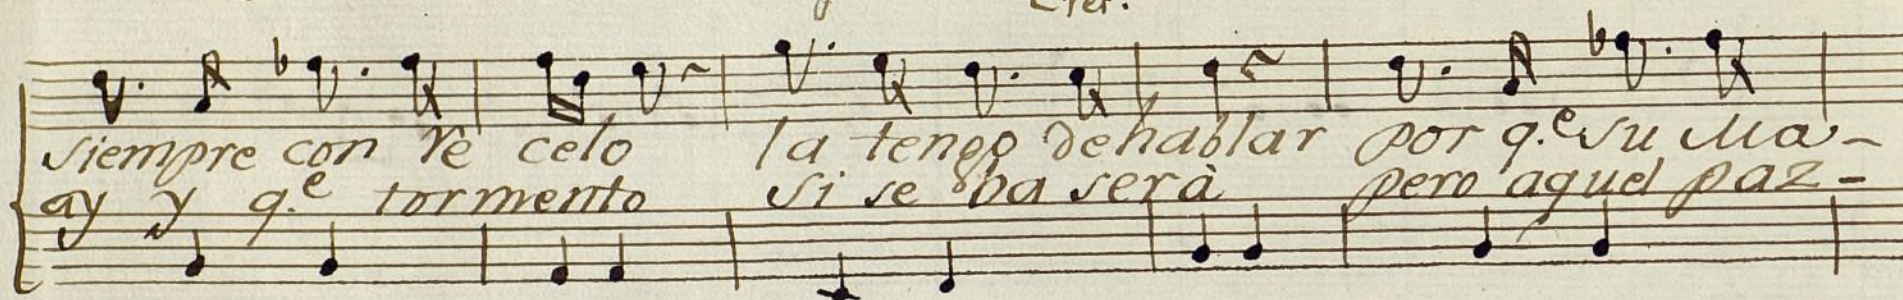 siempre con re celo la tengo de hablar por q.e su Ma-
ay y q.e tormento si se ba serà pero aquel paz-